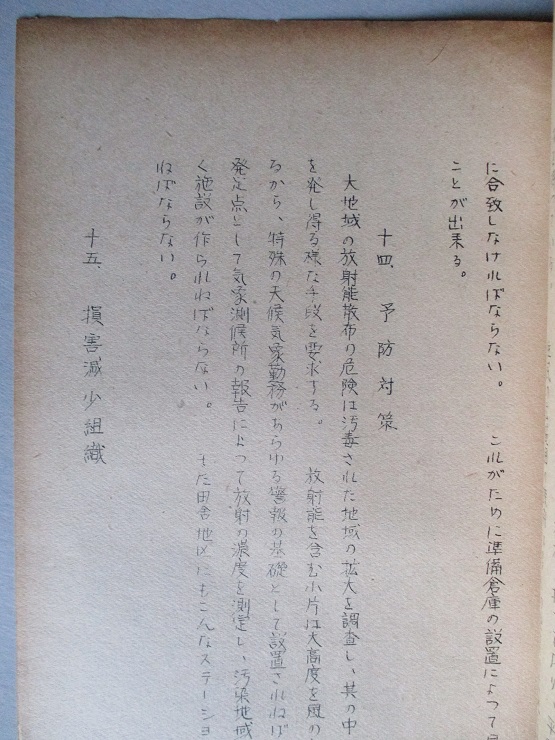 に合致しなければならない。　これがために準備倉庫の設置によって
ことが出来る。
十四、予防対策
大地域の放射能散布の危険は汚毒された地域の拡大を調査し、其の中
を発し得る様な手段を要求する。　放射能を含む小片は大高度を風の
るから、特殊の天候気象勤務があらゆる警報の基礎として設置されねば
発定点として気象測候所の報告によって放射の濃度を測定し、汚染地域
く施設が作られねばならない。　また田舎地区にもこんなステーショ
ねばならない。
十五、損害減少組織